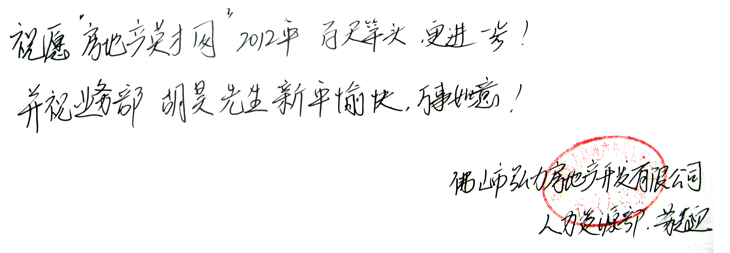 祝愿“房地产英才网”2012年 百尺竿头,更进一步!
并祝业务部 胡昊先生新年愉快,万事如意!
佛山市弘力房地产开发有限公司
人力资源部.